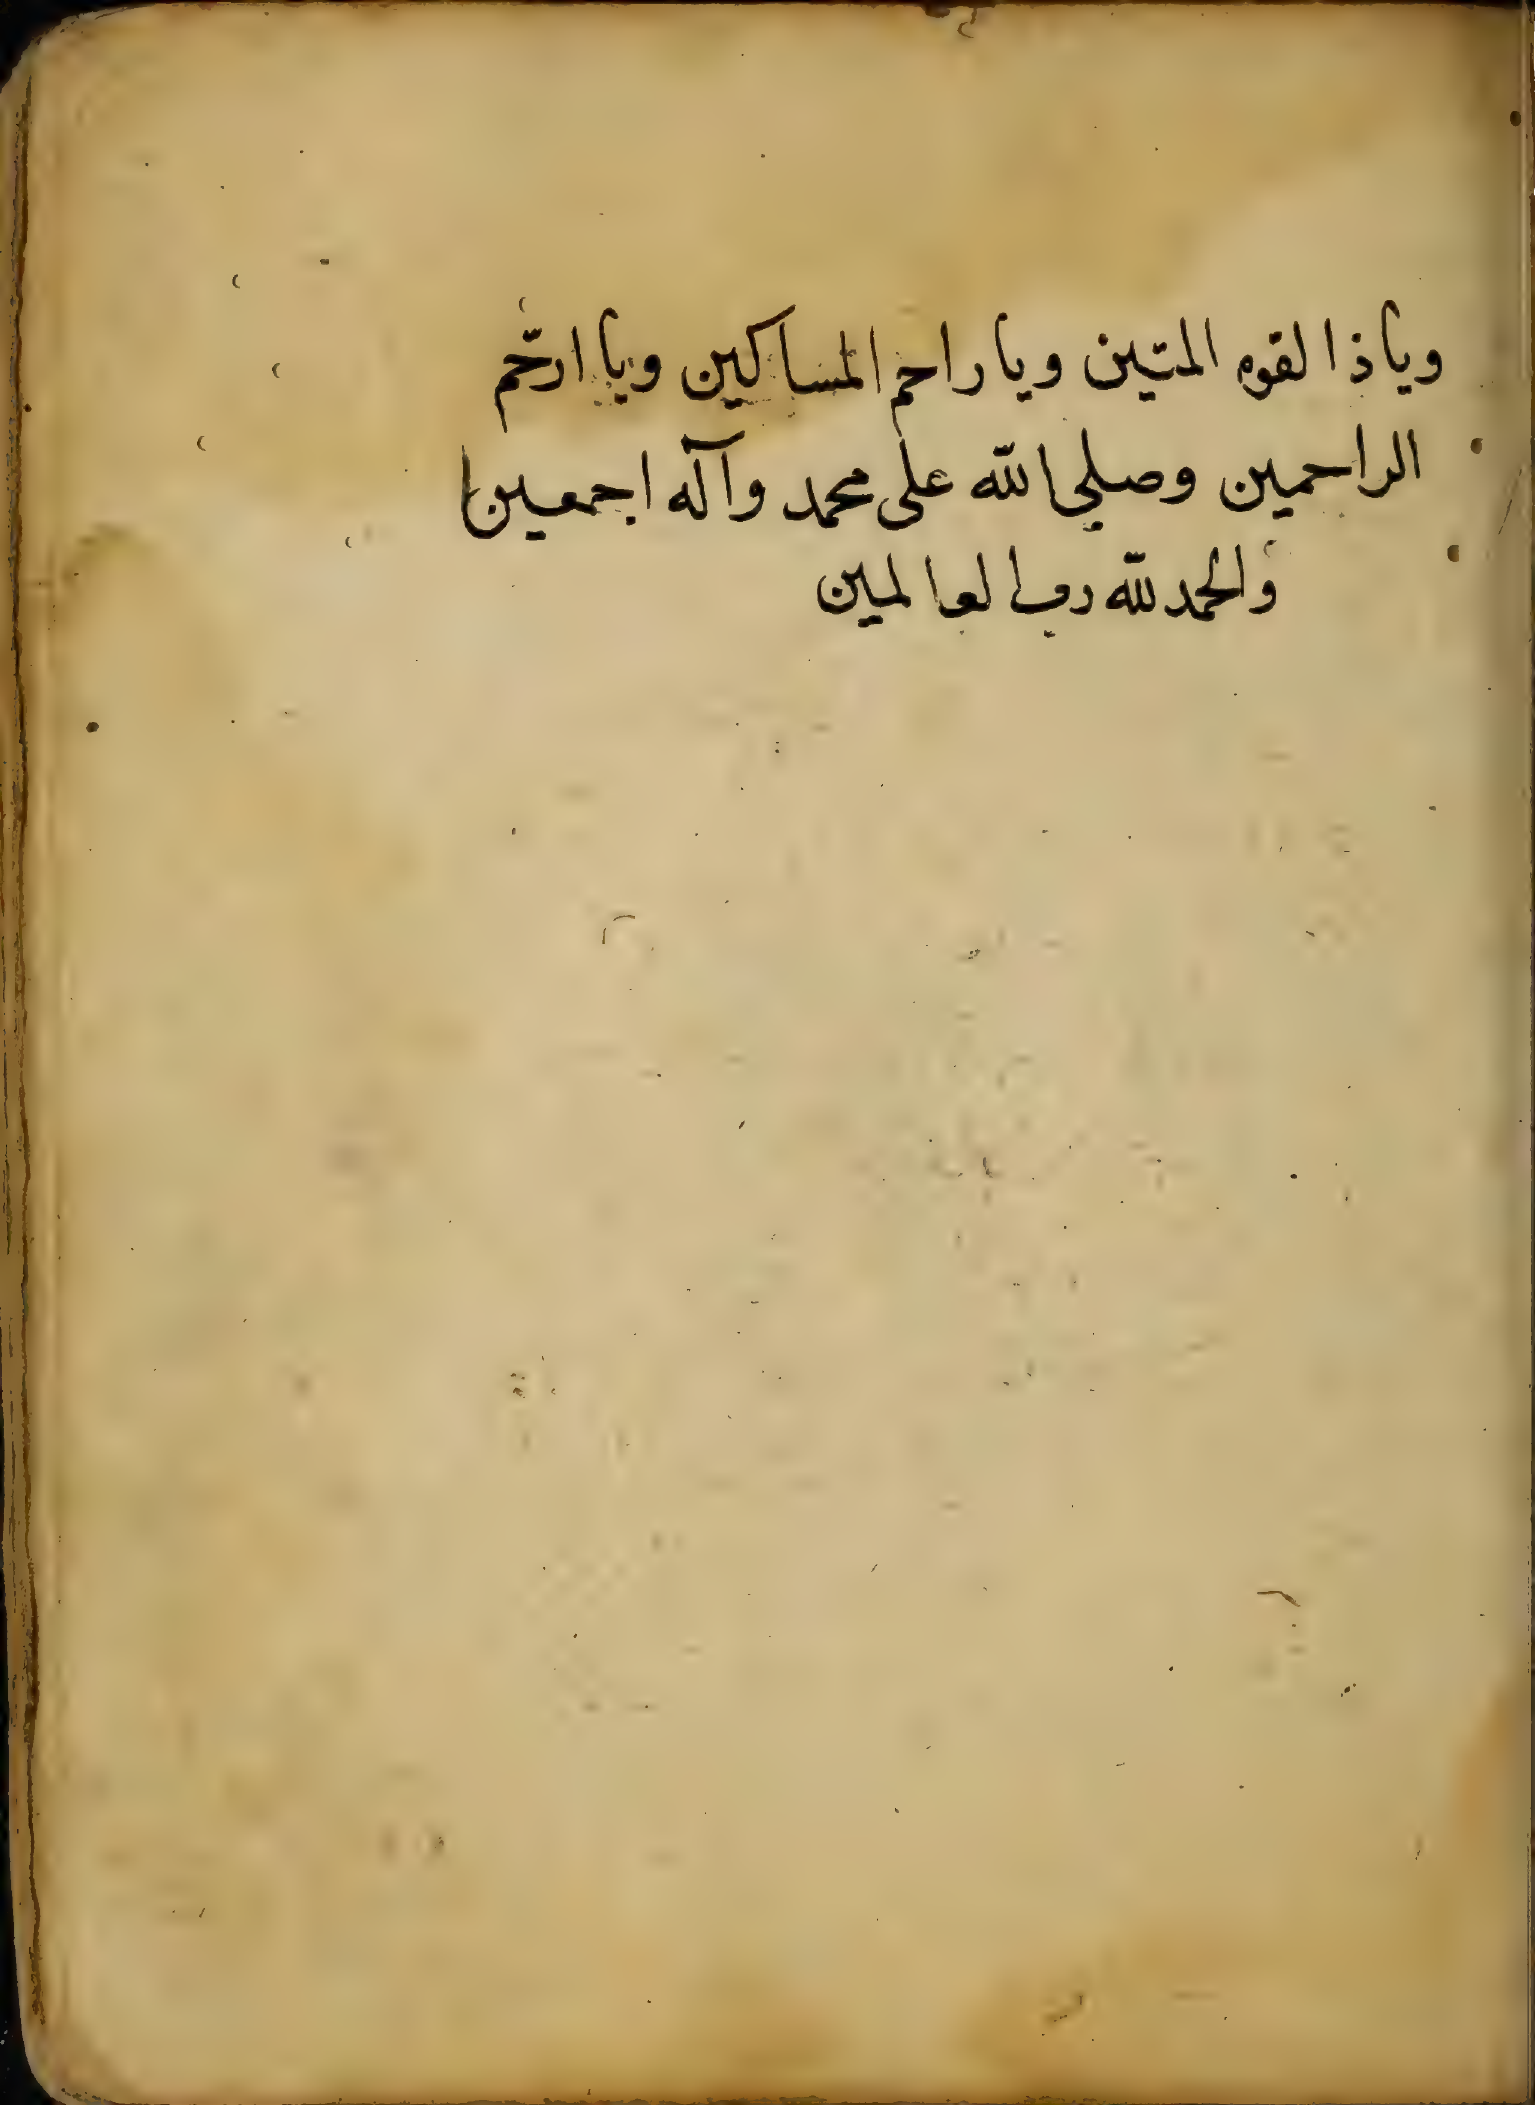 ويا ذا القوه المتين ويا راحم المساكين ويا ارحم
الراحمين وصلى الله على محمد وآله اجمعين
والحمد لله رب العالمين